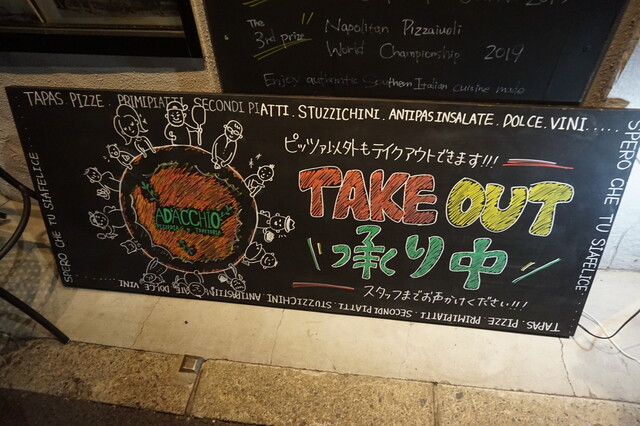 The 3rd prize Napolitan Pizzaiuoli
World Championship 2019
Enjoy authentic Southern Italian cuisine
TAPAS . PIZZE . PRIMIPIATTI SECONDI PIATTI . STUZZICHINI . ANTIPASINSALATE . DOLCE . VINI .....
SPERO CHE TU SIAFELICE ...
ピッツァ以外もテイクアウトできます!!!
ADACCHIO
TAKE OUT
承り中
スタッフまでお声かけください!!!
SPERO CHE TU SIAFELICE .....
TAPAS . PIZZE . PRIMIPIATTI . SECONDI PIATTI . STUZZICHINI . DOLCE VINI